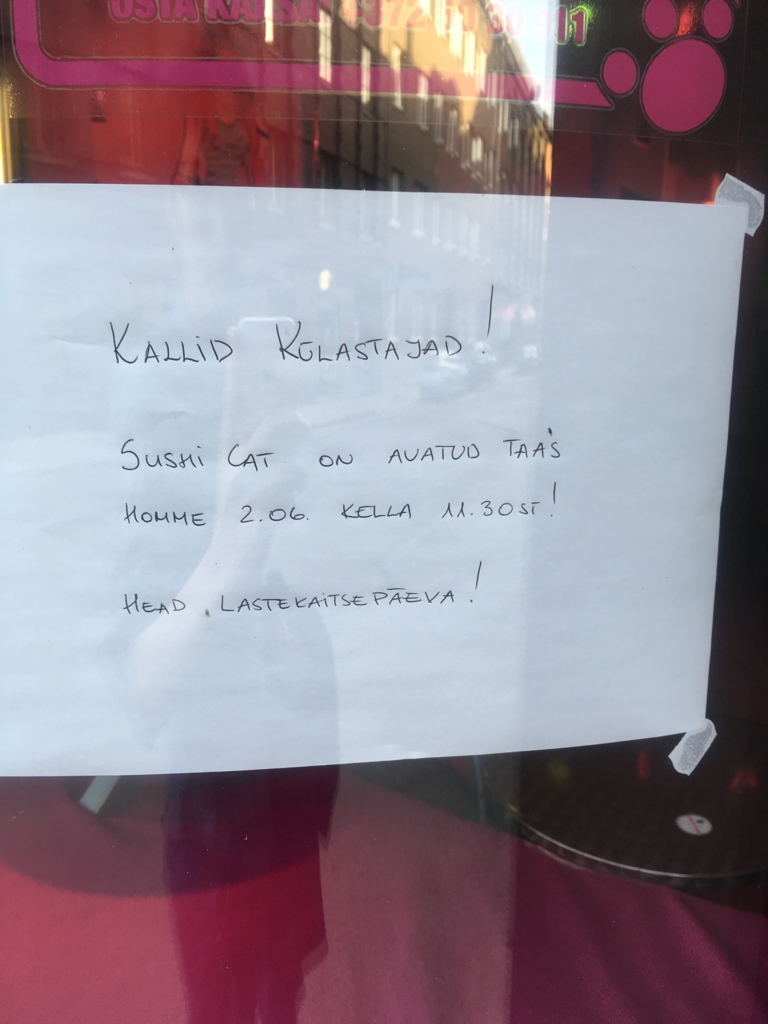 OSTA KAASA! +372
KALLID KÜLASTAJAD!
SUSHI CAT ON AVATUD TAAS
HOMME 2.06. KELLA 11.30ST!
HEAD LASTEKAITSEPÄEVA!